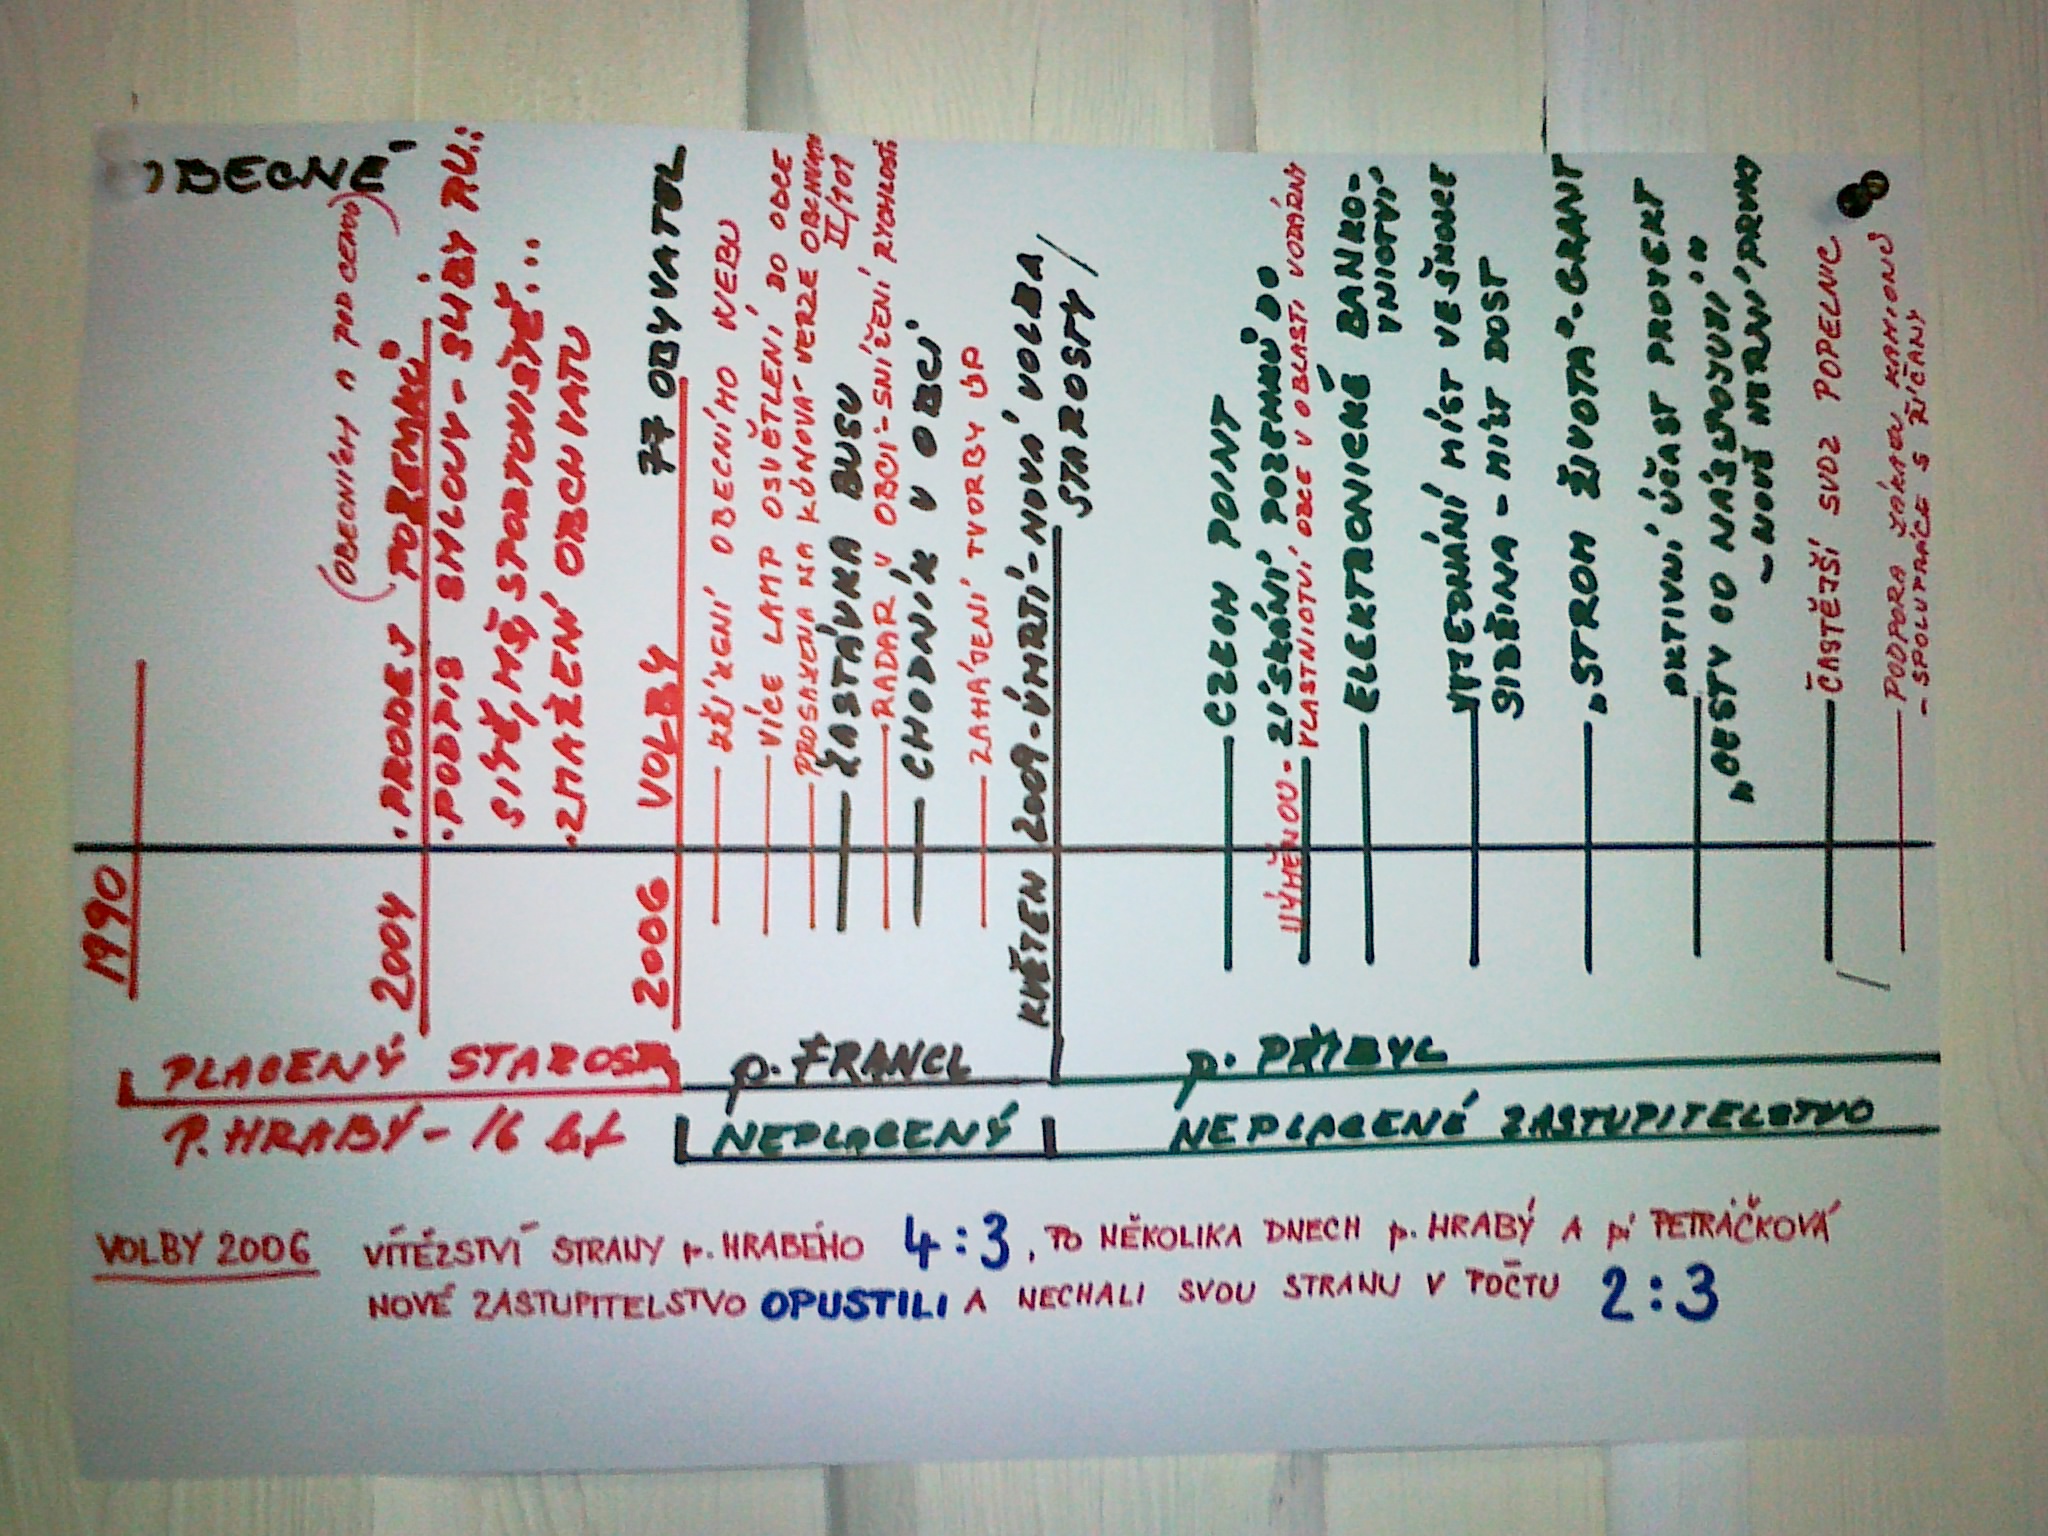 OBECNĚ
1990
2004
(OBECNÍCH A POD CENOU)
• PRODEJ POZEMKŮ
• PODPIS SMLOUVY - SLUŽBY
SÍTĚ, MŠ, SPORTOVIŠTĚ...
• ZMAŽENÍ OBCHVATU
2006 VOLBY 77 OBYVATEL
ZŘÍZENÍ OBECNÍHO WEBU
VÍCE LAMP OSVĚTLENÍ DO OBCE
PROSAZENA NA KÚ NOVÁ VERZE OBCHVATU
II/101
ZASTÁVKA BUSU
RADAR V OBCI - SNÍŽENÍ RYCHLOSTI
CHODNÍK V OBCI
ZAHÁJENÍ TVORBY ÚP
KVĚTEN 2009 - ÚMRTÍ - NOVÁ VOLBA
STAROSTY
CZECH POINT
VÝMĚNOU - ZÍSKÁNÍ POZEMKŮ DO
VLASTNICTVÍ OBCE V OBLASTI VODÁRNY
ELEKTRONICKÉ BANKO-
VNICTVÍ
VYJEDNÁNÍ MÍST VE ŠKOLCE
SIBŘINA - MÍST DOST
„STROM ŽIVOTA" - GRANT
AKTIVNÍ ÚČAST PROJEKT
„CESTY CO NÁS SPOJUJÍ"
ČASTĚJŠÍ SVOZ POPELNIC
PODPORA ZÁKAZU KAMIONŮ
- SPOLUPRÁCE S ŘÍČANY
PLACENÝ STAROSTA
P. HRABÝ - 16 let
p. FRANCL
NEPLACENÝ
p. PŘIBYL
NEPLACENÉ ZASTUPITELSTVO
VOLBY 2006 VÍTĚZSTVÍ STRANY p. HRABÉHO 4:3, PO NĚKOLIKA DNECH p. HRABÝ A pí PETRÁČKOVÁ
NOVÉ ZASTUPITELSTVO OPUSTILI A NECHALI SVOU STRANU V POČTU 2:3